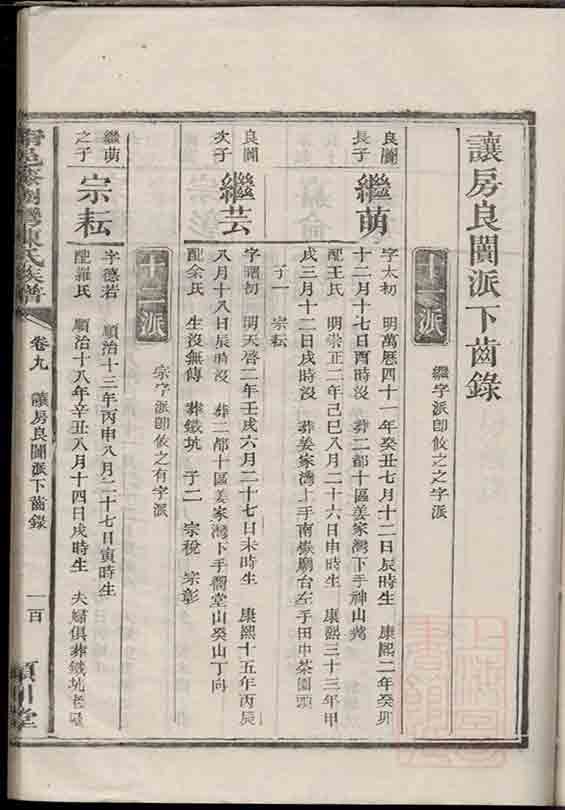 讓房良闓派下齒錄
十一派
繼字派卽攸之之字派
良闓長子
繼萌
字太初 明萬厯四十一年癸丑七月十二日辰時生 康熙二年癸卯
十二月十七日酉時沒 葬二都十區姜家灣下手神山
配王氏 明崇正二年己巳八月二十六日申時生 康熙三十三年甲
戌三月十二日戌時沒 葬姜家灣上手南嶽廟台左手田中茶園頭
子一 宗耘
良闓次子
繼芸
字曙初 明天啓二年壬戌六月二十七日未時生 康熙十五年丙辰
八月十八日辰時沒 葬二都十區姜家灣下手獨堂山癸山丁向
配余氏 生沒無傳 葬鐵坑 子二 宗稅 宗彰
十二派
宗字派卽攸之有字派
繼萌之子
宗耘
字德若 順治十三年丙申八月二十七日寅時生
配羅氏 順治十八年辛丑八月十四日戌時生 夫婦俱葬鐵坑老
陳氏族譜
卷九
讓房良闓派下齒錄
一百
潁川堂